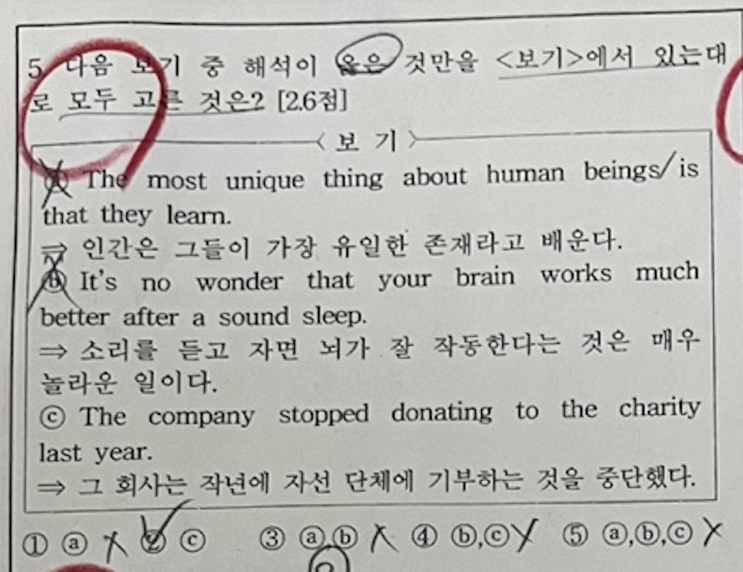 5. 다음 보기 중 해석이 옳은 것만을 <보기>에서 있는대
로 모두 고른 것은? [2.6점]
< 보 기 >
ⓐ The most unique thing about human beings/is
that they learn.
⇒ 인간은 그들이 가장 유일한 존재라고 배운다.
ⓑ It's no wonder that your brain works much
better after a sound sleep.
⇒ 소리를 듣고 자면 뇌가 잘 작동한다는 것은 매우
놀라운 일이다.
ⓒ The company stopped donating to the charity
last year.
⇒ 그 회사는 작년에 자선 단체에 기부하는 것을 중단했다.
① ⓐ ② ⓒ ③ ⓐ,ⓑ ④ ⓑ,ⓒ ⑤ ⓐ,ⓑ,ⓒ